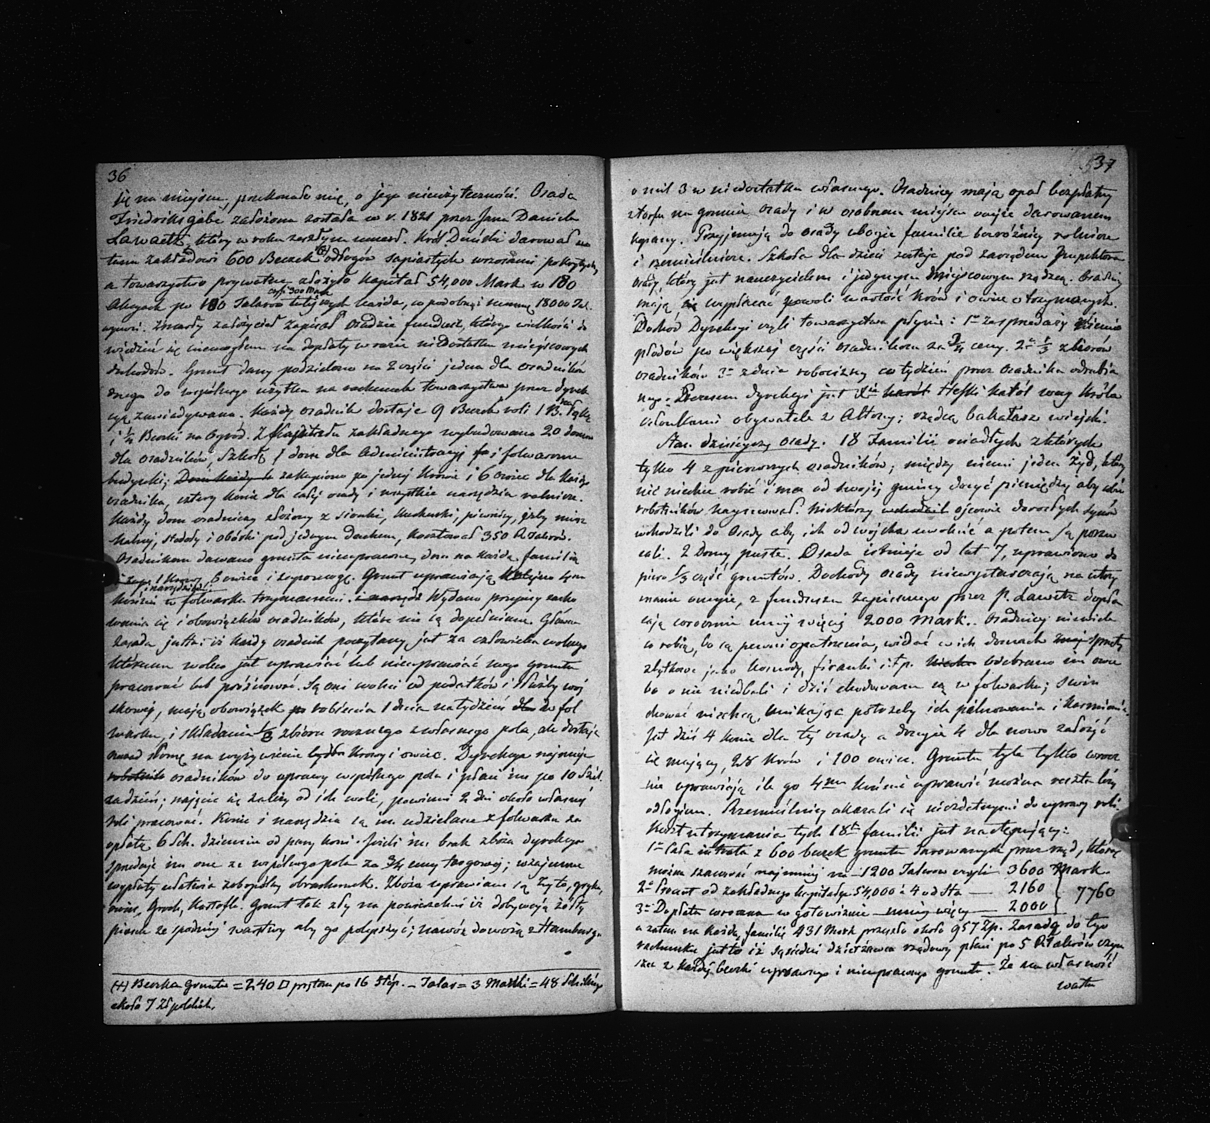 36
się na miejscu, przekonałe się, o jego nieużyteczności. Osada
Friedriksgabe założona została w r. 1821 przez Jana Daniela
Lawaetz, który w roku zeszłym umarł. Król Duński darował na
ten zakład 600 Beczek (+) odłogów sapiastych wrzosami pokrytych
a towarzystwo prywatne złożyło kapitał 54,000 Mark w 180
czyli 300 Mark
Akcyach po 100 Talarów każda, w podobnej summę 18000 Tal.
Zmarły założyciel zapisał Osadzie fundusz, którego wielkości do
wiedzieć się niemogłem na dopłaty w razie niedostatku miejscowych
dochodów. Grunt dany podzielono na 2 części jedna dla osadników
druga do wspólnego użytku na rachunek towarzystwa przez dyrek
cyą zawiadywana. Każdy osadnik dostaje 9 Beczek roli 1 B. na łąkę
i ½ Beczki na Ogród. Z Kapitału zakładnego wybudowano 20 domów
dla osadników, Szkołę, 1 dom dla Administracyi i folwarczne
budynki; zakupiono po jednej Krowie i 6 owiec dla każdego
osadnika, cztery konie dla całej osady i wszystkie narzędzia rolnicze.
Każdy dom osadniczy złożony z sionki, kuchenki, piwnicy, izby miesz
kalnej, stodoły i obórki pod jednym dachem, kosztował 350 R.talarów.
Osadnikom dawano grunta nieuprawne, dom na każdą familią
1 Krowę, 6 owiec i zaprowę. Grunt uprawiają kolejno 4ma
i narzędziami
końmi w folwarku trzymanemi. Wydano przepisy zacho
wania się i obowiązków osadników, które nie są dopełniane. Główna
zasada jest: iż każdy osadnik poczytany jest za człowieka wolnego
któremu wolno jest uprawiać lub nieuprawiać swego gruntu
pracować lub próżnować. Są oni wolni od podatków i służby woj
skowej, mają obowiązek robienia 1 dnia na tydzień dla fol
warku, i składania ⅓ zbioru rocznego z własnego pola, ale dostają
nazad słomę na wyżywienie krowy i owiec. Dyrekcya najmuje
osadników do uprawy wspólnego pola i płaci im po 10 Szel.
za dzień; najęcie się zależy od ich woli, powinni 2 dni około własnej
roli pracować. Konie i narzędzia są im udzielane z folwarku za
opłatą 6 Sch. dziennie od pary koni. Jeżeli im brak zboża dyrekcya
sprzedaje im one ze wspólnego pola za ¾ ceny targowej; wzajemne
wypłaty ułatwia zobopólny obrachunek. Zboża uprawiane są żyto, gryka,
owies, Groch, Kartofle. Grunt tak zły na powierzchni iż dobywają żółty
piasek ze spodniej warstwy aby go polepszyć; nawóz dowożą z Hamburga.
(+) Beczka gruntu = 240 □ prętom po 16 stóp. – Talar = 3 Marki = 48 Szelingów
około 7 Zł polskich.
37
o mil 3 w niedostatku własnego. Osadnicy mają opał bezpłatny
z torfu na gruncie osady i w osobnem miejscu darowanem
kopany. Przyjmują do osady ubogie familie bez różnicy rolnicze
i rzemieślnicze. Szkoła dla dzieci zostaje pod zarządem Inspektora
osady, który jest nauczycielem i jedynym miejscowym rządzcą. Osadnicy
mają wypłacać powoli wartość krów i owiec otrzymanych.
Dochód Dyrekcyi czyli towarzystwa płynie: 1º ze sprzedaży
płodów po większej części osadnikom za ¾ ceny. 2º ⅓ zbiorów
osadników 3º z dnia roboczizny co tydzień przez osadnika odrabia
nego. Prezesem dyrekcyi jest Xże Heski
członkami obywatele z Altony; rządcą bakałarz wiejski.
Stan dzisiejszy osady. 18 Familii osiadłych z których
tylko 4 z pierwszych osadników; między niemi jeden żyd, który
nic niechce robić i ma od swojej gminy dosyć pieniędzy aby sobie
robotników najmował. Niektórzy ojcowie dorosłych synów
wchodzili do Osady aby ich od wojska uwolnić a potem ją porzu
cali. 2 Domy puste. Osada istnieje od lat 7, uprawiono do
piero ⅓ część gruntów. Dochody osady niewystarczają na utrzy
manie onejże, z funduszu zapisanego przez P. Lawetz dopła
cają corocznie mniej więcej 2000 Mark. Osadnicy niewiele
co robią, bo są pewni opatrzenia, widać w ich domach sprzęty
zbytkowe jako komody, firanki i t.p. Odebrano im owce
bo o nie niedbali i dziś chodowane są w folwarku; świń
chować niechcą, unikając potrzeby ich pilnowania i karmienia.
Jest dziś 4 konie dla tej osady a drugie 4 dla nowo założyć
się mającej, 28 krów i 100 owiec. Gruntu tyle tylko coro
cznie uprawiają ile go 4ma końmi uprawić można reszta leży
odłogiem. Rzemieślnicy okazali się niezdatnemi do uprawy roli.
Koszt utrzymania tych 18tu familii jest następujący:
1º Cała intrata z 600 beczek gruntu darowanych przez rząd, którą
można szacować najmniej na 1200 Talarów czyli – 3600 Mark.
2º Procent od zakładnego kapitału 54,000 à 4 od sta — 2160
7760
3º Dopłata coroczna w gotowiźnie mniej więcej — 2000
a zatem na każdą familię 431 Mark przeszło około 957 Złp. Zasadą do tego
rachunku jest to iż sąsiedni dzierżawca rządowy płaci po 5 R.talarów czyn
szu z każdej beczki uprawnego i nieuprawnego gruntu. Że na własność
watu